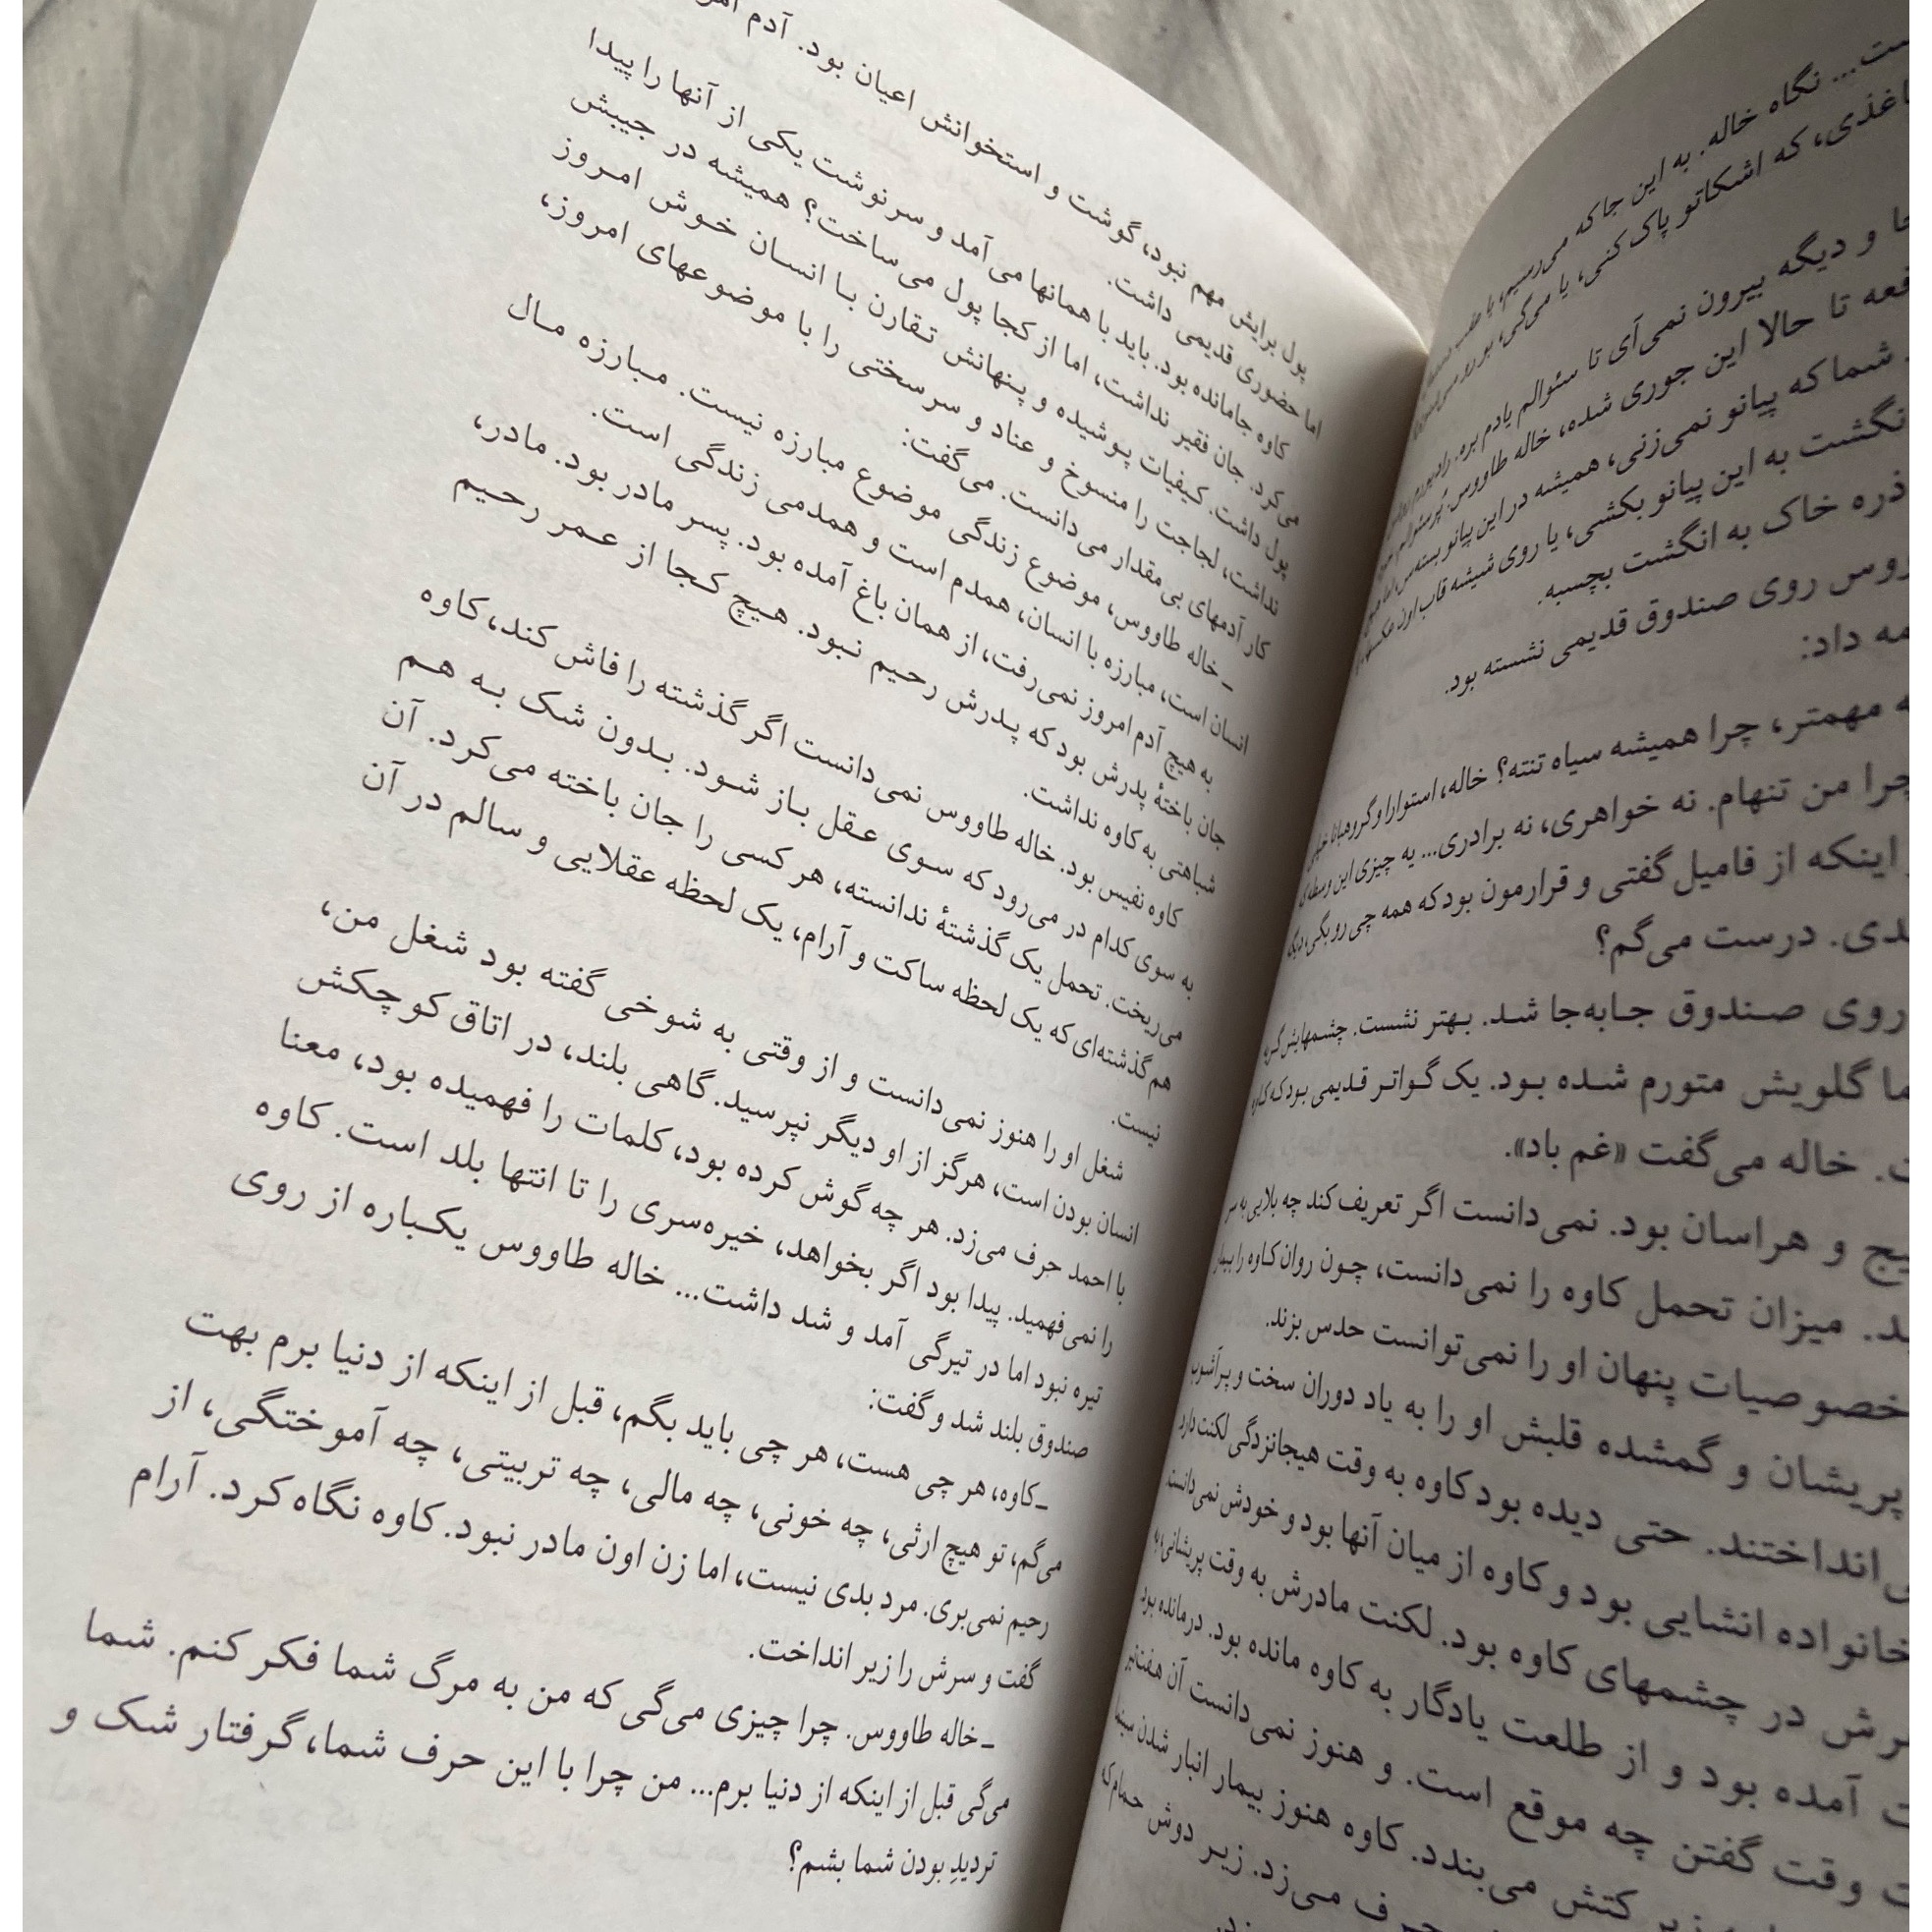 ست... نگاه خاله. به این جا که می‌رسیم، یا
اغذی، که اشکاتو پاک کنی، یا می‌گی، بو
و دیگه بیرون نمی‌آی تا سئوالم یادم بره.
تا حالا این جوری شده، خاله طاووس.
شما که پیانو نمی‌زنی، همیشه در این پیانو بسته‌س، اما
به این پیانو بکشی، یا روی شیشه قاب اون
ذره خاک به انگشت بچسبه.
روی صندوق قدیمی نشسته بود.
داد:
مهمتر، چرا همیشه سیاه تنته؟ خاله،
چرا من تنهام. نه خواهری، نه برادری... یه چیزی این وسطه
اینکه از فامیل گفتی و قرارمون بود که همه چی رو بگی،
درست می‌گم؟
روی صندوق جابه‌جا شد. بهتر نشست. چشمهایش
گلویش متورم شده بود. یک گواتر قدیمی بود که
خاله می‌گفت «غم باد».
و هراسان بود. نمی‌دانست اگر تعریف کند چه بلایی به سر
میزان تحمل کاوه را نمی‌دانست، چون روان کاوه را
خصوصیات پنهان او را نمی‌توانست حدس بزند.
پریشان و گمشده قلبش او را به یاد دوران سخت و پرآشوب
انداختند. حتی دیده بود کاوه به وقت هیجانزدگی لکنت دارد
خانواده انشایی بود و کاوه از میان آنها بود و خودش نمی‌دانست.
در چشمهای کاوه بود. لکنت مادرش به وقت پریشانی، به
آمده بود و از طلعت یادگار به کاوه مانده بود. درمانده بود
وقت گفتن چه موقع است. و هنوز نمی‌دانست آن
کتش می‌بندد. کاوه هنوز بیمار انبار شدن
می‌زد. زیر دوش حمام که
پول برایش مهم نبود، گوشت و استخوانش اعیان بود. آدم
اما حضوری قدیمی داشت.
کاوه جامانده بود. باید با همانها می‌آمد و سرنوشت یکی از آنها را پیدا
می‌کرد. جان فقیر نداشت، اما از کجا پول می‌ساخت؟ همیشه در جیبش
پول داشت. کیفیات پوشیده و پنهانش تقارن با انسان خوش امروز
نداشت، لجاجت را منسوخ و عناد و سرسختی را با موضوعهای امروز،
کار آدمهای بی‌مقدار می‌دانست. می‌گفت:
ـ خاله طاووس، موضوع زندگی موضوع مبارزه نیست. مبارزه مال
انسان است، مبارزه با انسان، همدم است و همدمی زندگی است.
به هیچ آدم امروز نمی‌رفت، از همان باغ آمده بود. پسر مادر بود. مادر،
جان باختهٔ پدرش بود که پدرش رحیم نبود. هیچ کجا از عمر رحیم
شباهتی به کاوه نداشت.
کاوه نفیس بود. خاله طاووس نمی‌دانست اگر گذشته را فاش کند، کاوه
به سوی کدام در می‌رود که سوی عقل باز شود. بدون شک به هم
می‌ریخت. تحمل یک گذشتهٔ ندانسته، هر کسی را جان باخته می‌کرد. آن
هم گذشته‌ای که یک لحظه ساکت و آرام، یک لحظه عقلایی و سالم در آن
نیست.
شغل او را هنوز نمی‌دانست و از وقتی به شوخی گفته بود شغل من،
انسان بودن است، هرگز از او دیگر نپرسید. گاهی بلند، در اتاق کوچکش
با احمد حرف می‌زد. هر چه گوش کرده بود، کلمات را فهمیده بود، معنا
را نمی‌فهمید. پیدا بود اگر بخواهد، خیره‌سری را تا انتها بلد است. کاوه
تیره نبود اما در تیرگی آمد و شد داشت... خاله طاووس یکباره از روی
صندوق بلند شد و گفت:
ـ کاوه، هر چی هست، هر چی باید بگم، قبل از اینکه از دنیا برم بهت
می‌گم، تو هیچ ارثی، چه خونی، چه مالی، چه تربیتی، چه آموختگی، از
رحیم نمی‌بری. مرد بدی نیست، اما زن اون مادر نبود. کاوه نگاه کرد. آرام
گفت و سرش را زیر انداخت.
ـ خاله طاووس. چرا چیزی می‌گی که من به مرگ شما فکر کنم. شما
می‌گی قبل از اینکه از دنیا برم... من چرا با این حرف شما، گرفتار شک و
تردیدِ بودن شما بشم؟